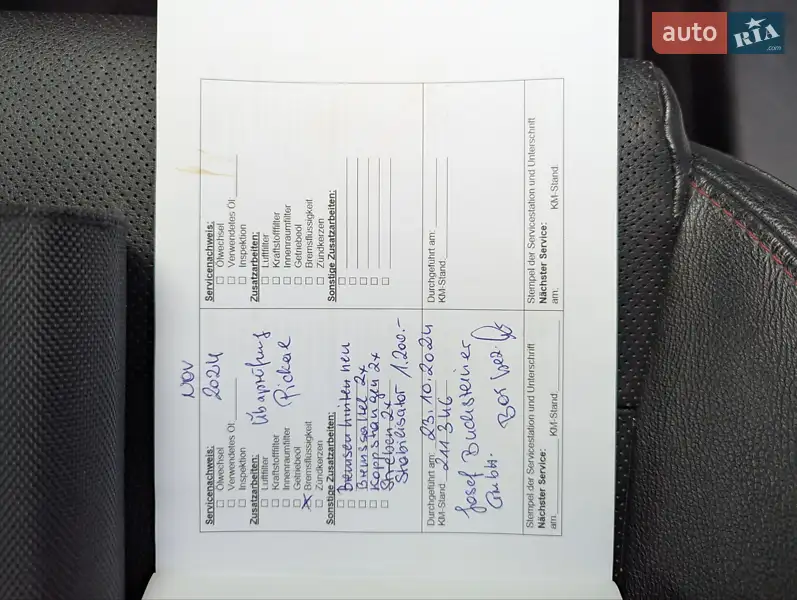 auto RIA
.com
NOV
2024
Servicenachweis:
☐ Ölwechsel
☐ Verwendetes Öl:
☐ Inspektion
Überprüfung
Pickerl
Zusatzarbeiten:
☐ Luftfilter
☐ Kraftstofffilter
☐ Innenraumfilter
☐ Getriebeöl
☒ Bremsflüssigkeit
☐ Zündkerzen
Sonstige Zusatzarbeiten:
☐ Bremsen hinten neu
☐ Bremssattel 2x
☐ Koppstangen 2x
☐ Streben 2x
☐ Stabilisator 1.200.-
Durchgeführt am: 23.10.2024
KM-Stand 211346
Josef Buchsteiner
GmbH. Bar bez.
Stempel der Servicestation und Unterschrift
Nächster Service:
am KM-Stand
Servicenachweis:
☐ Ölwechsel
☐ Verwendetes Öl:
☐ Inspektion
Zusatzarbeiten:
☐ Luftfilter
☐ Kraftstofffilter
☐ Innenraumfilter
☐ Getriebeöl
☐ Bremsflüssigkeit
☐ Zündkerzen
Sonstige Zusatzarbeiten:
☐
☐
☐
☐
☐
Durchgeführt am:
KM-Stand
Stempel der Servicestation und Unterschrift
Nächster Service:
am KM-Stand